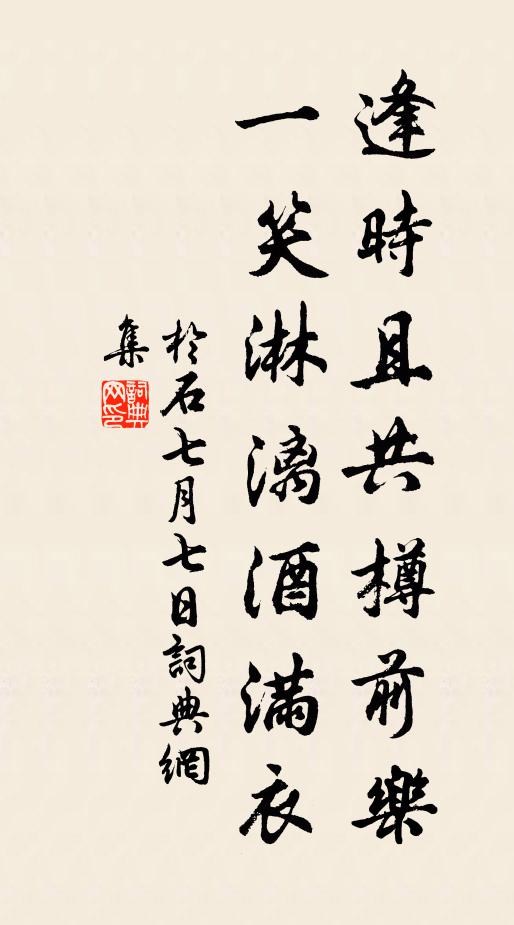 逢時且共樽前樂
一笑淋漓酒滿衣
於石七月七日詞典網
集
詞典
网印